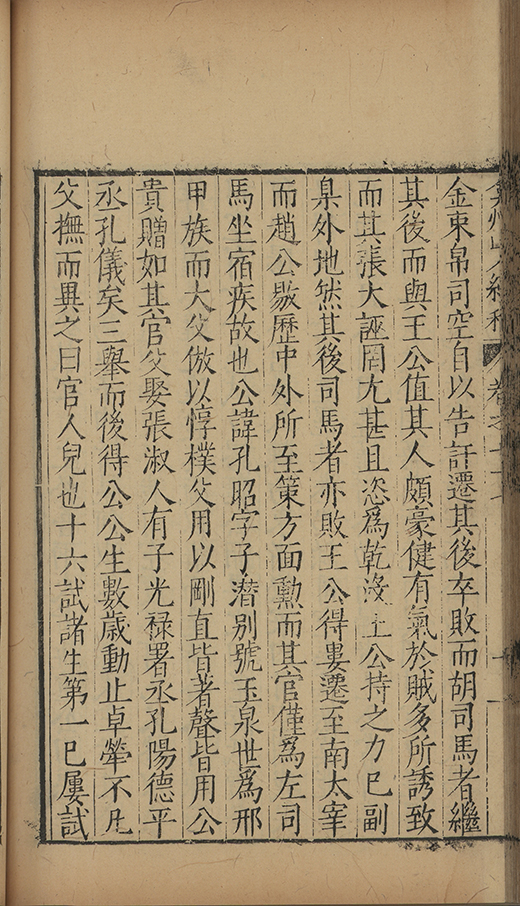 弇州山人續稿 卷之
金束帛司空自以告訐遷其後卒敗而胡司馬者繼
其後而與王公值其人頗豪健有氣於賊多所誘致
而其張大誣罔尢甚且恣爲乾沒王公持之力巳副
臬外地然其後司馬者亦敗王公得婁遷至南太宰
而趙公敭歷中外所至策方面勲而其官僅爲左司
馬坐宿疾故也公諱孔昭字子潜别號玉泉世爲邢
甲族而大父倣以惇樸父用以剛直皆著聲皆用公
貴贈如其官父娶張淑人有子光禄署丞孔陽德平
丞孔儀矣三舉而後得公公生數歳動止卓犖不凡
父撫而異之曰官人兒也十六試諸生第一巳屢試